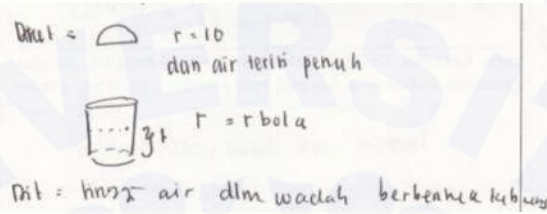 Diket = r = 10
dan air terisi penuh
r = r bola
t
Dit = air dlm wadah berbentuk tabung